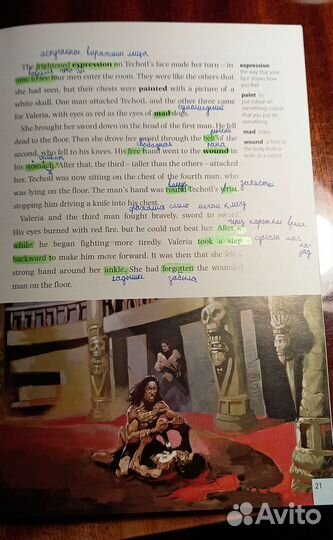 испуганное выражение лица
The frightened expression on Techotl's face made her turn – in
time to see four men enter the room. They were like the others that
she had seen, but their chests were painted with a picture of a
white skull. One man attacked Techotl, and the other three came
сумасшедший
for Valeria, with eyes as red as the eyes of mad dogs.
She brought her sword down on the head of the first man. He fell
dead to the floor. Then she drove her sword through the belt of the
свободная рана
second, who fell to his knees. His free hand went to the wound in
his stomach. After that, the third – taller than the others – attacked
her. Techotl was now sitting on the chest of the fourth man, who
запястье
was lying on the floor. The man's hand was round Techotl's wrist,
stopping him driving a knife into his chest.
Valeria and the third man fought bravely, sword to sword.
через короткое время
His eyes burned with red fire, but he could not beat her. After a
while he began fighting more tiredly. Valeria took a step
сделала шаг
backward to make him move forward. It was then that she felt a
назад
strong hand around her ankle. She had forgotten the wounded
лодыжке забыла
man on the floor.
expression
the way that your
face shows how
you feel
paint to
put colour on
something; colour
that you put on
something
mad crazy
wound a hole in
the body from a
knife or a sword
21
Avito